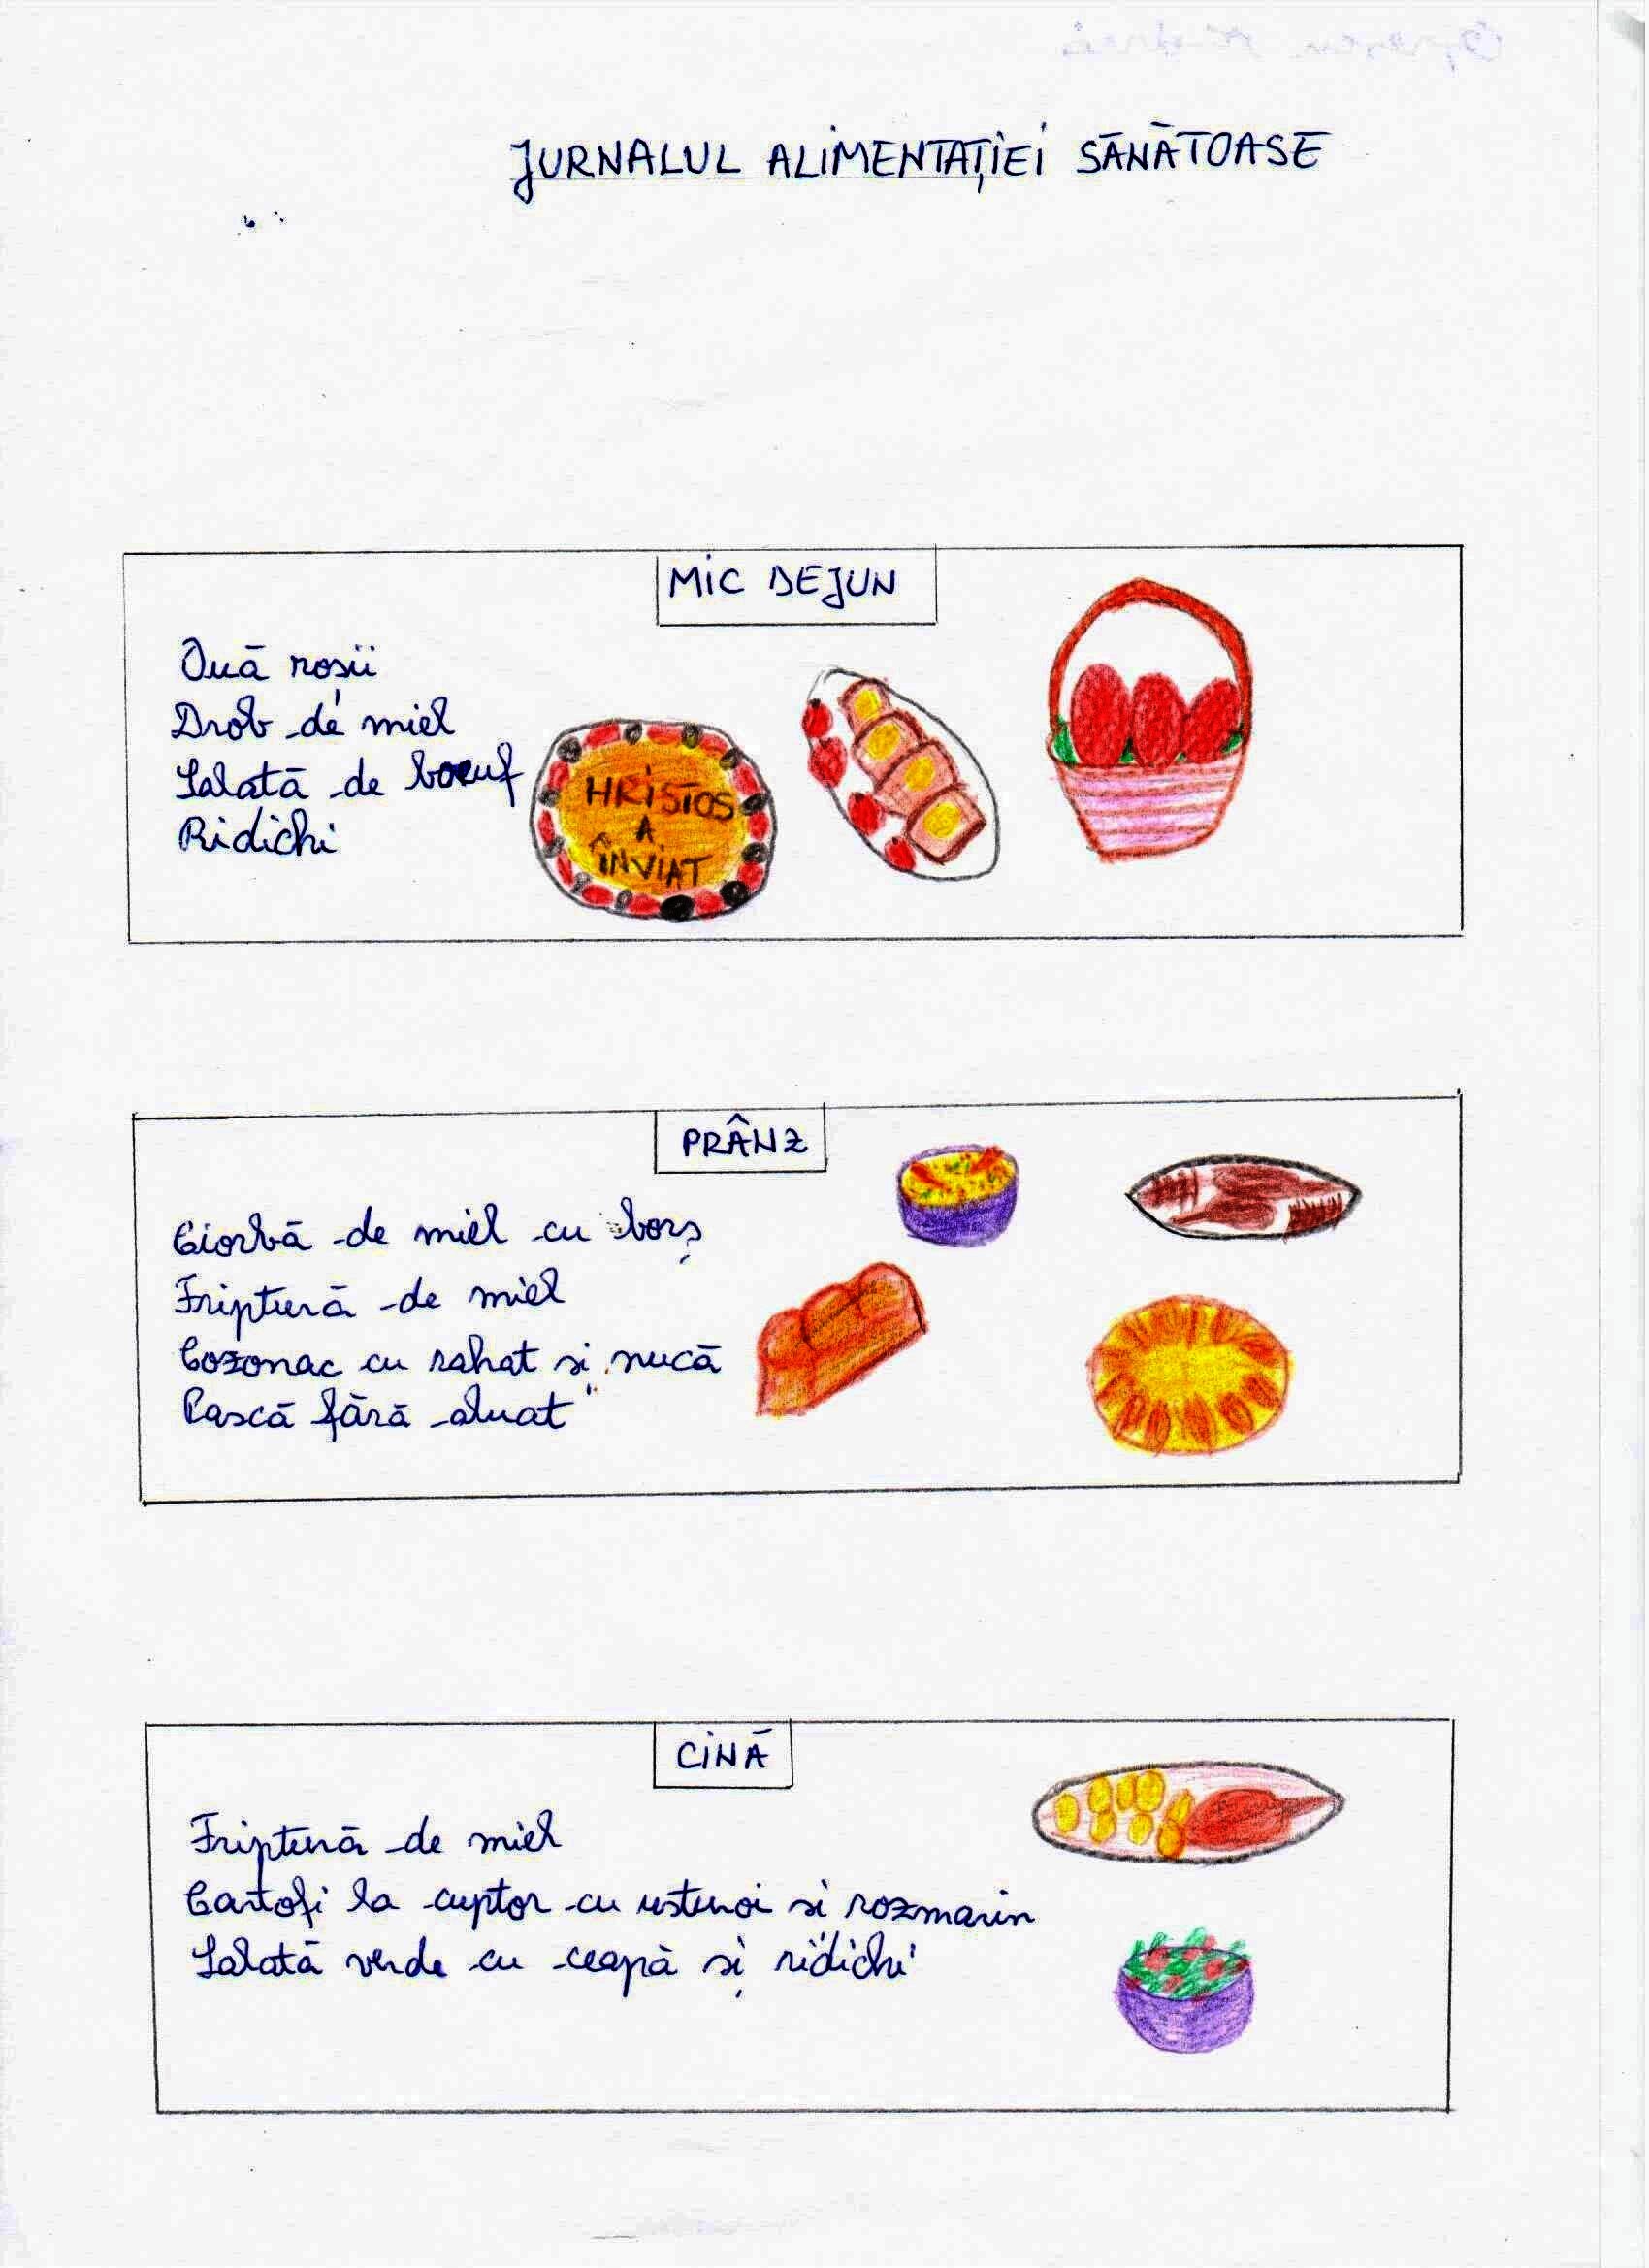 JURNALUL ALIMENTAȚIEI SĂNĂTOASE
MIC DEJUN
Ouă roșii
Drob de miel
Salată de boeuf
Ridichi
HRISTOS
A
ÎNVIAT
PRÂNZ
Ciorbă de miel cu borș
Friptură de miel
Cozonac cu rahat și nucă
Pască fără aluat
CINĂ
Friptură de miel
Cartofi la cuptor cu usturoi si rozmarin
Salată verde cu ceapă și ridichi